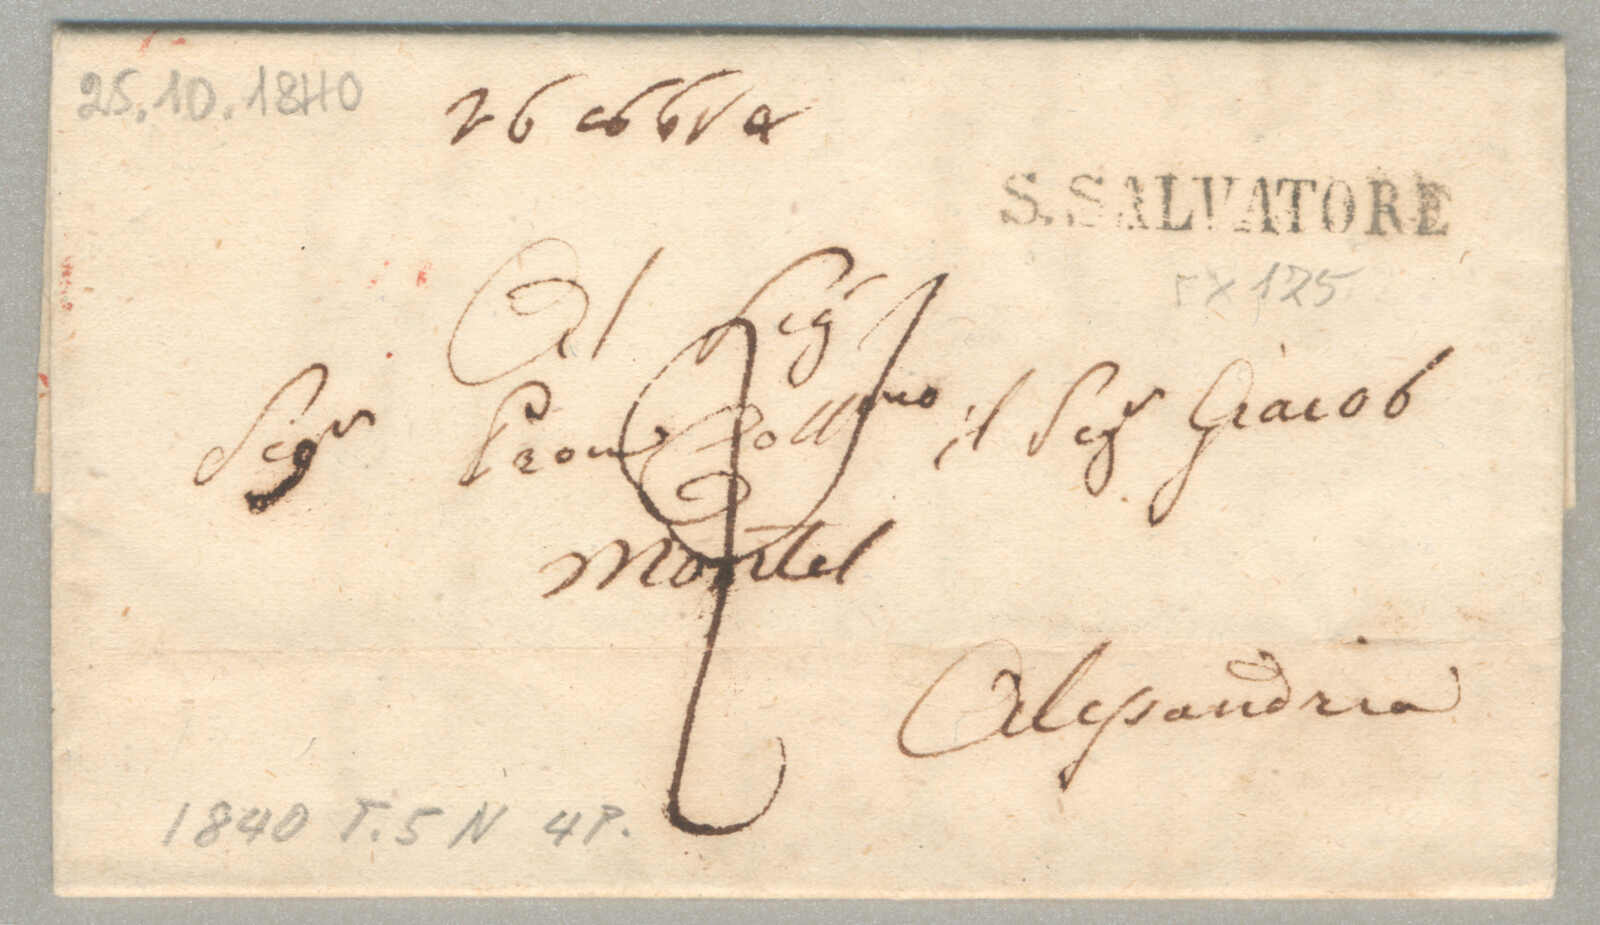 25.10.1840
26 ottobre
S. SALVATORE
rx 125
Al Sigr
Sigr Prone Collmo il Sigr Giacob
Montel
Alessandria
1840 T. 5 N 4 P.